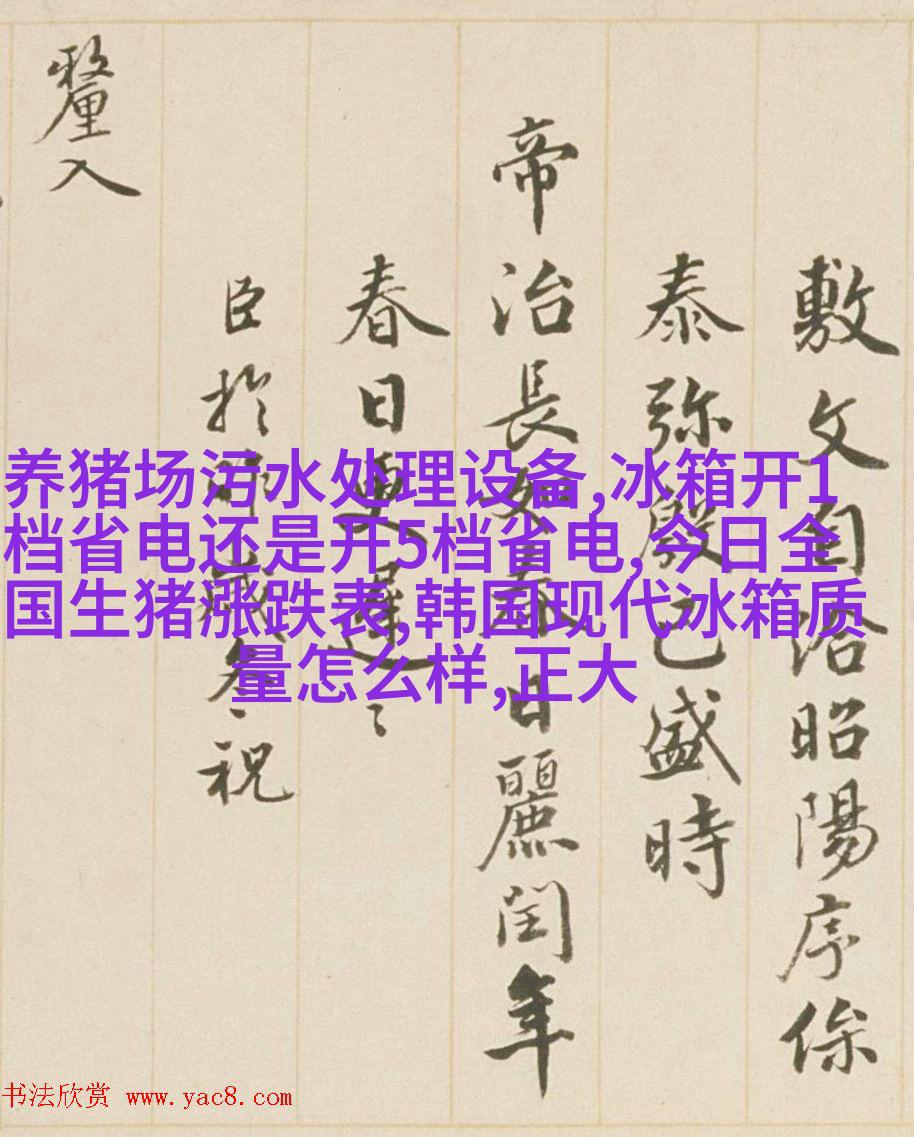 敷文自洽昭陽序係
泰弥殷已盛時
帝治長如春日麗閏年
春日更遲〻
臣於
叅〻祝
釐入
养猪场污水处理设备,冰箱开1
档省电还是开5档省电,今日全
国生猪涨跌表,韩国现代冰箱质
量怎么样,正大
书法欣赏 www.yac8.com